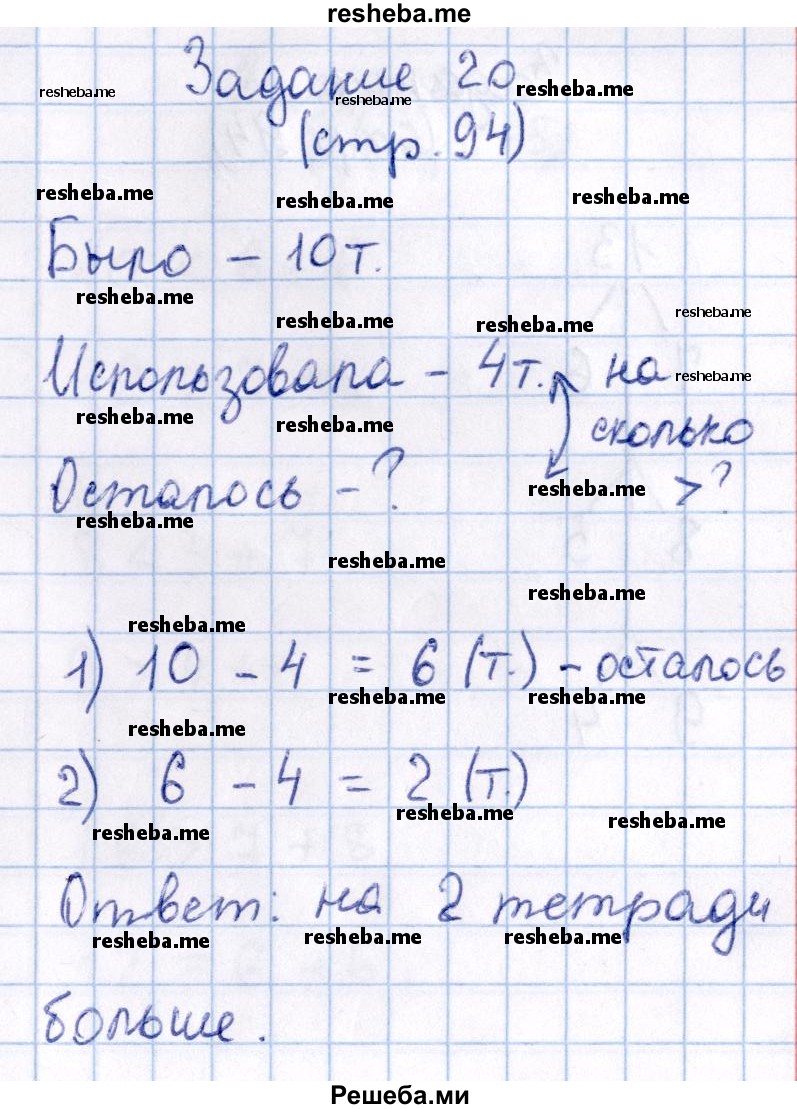 resheba.me
Задание 20
resheba.me resheba.me resheba.me
(стр. 94)
resheba.me resheba.me resheba.me
Было – 10 т.
resheba.me resheba.me
resheba.me resheba.me
Использовала – 4 т. на
resheba.me
resheba.me resheba.me
сколько
Осталось – ? > ?
resheba.me
resheba.me
resheba.me
resheba.me
resheba.me
1) 10 – 4 = 6 (т.) – осталось
resheba.me resheba.me
resheba.me
2) 6 – 4 = 2 (т.)
resheba.me resheba.me resheba.me
Ответ: на 2 тетради
resheba.me resheba.me resheba.me
больше.
Решеба.ми